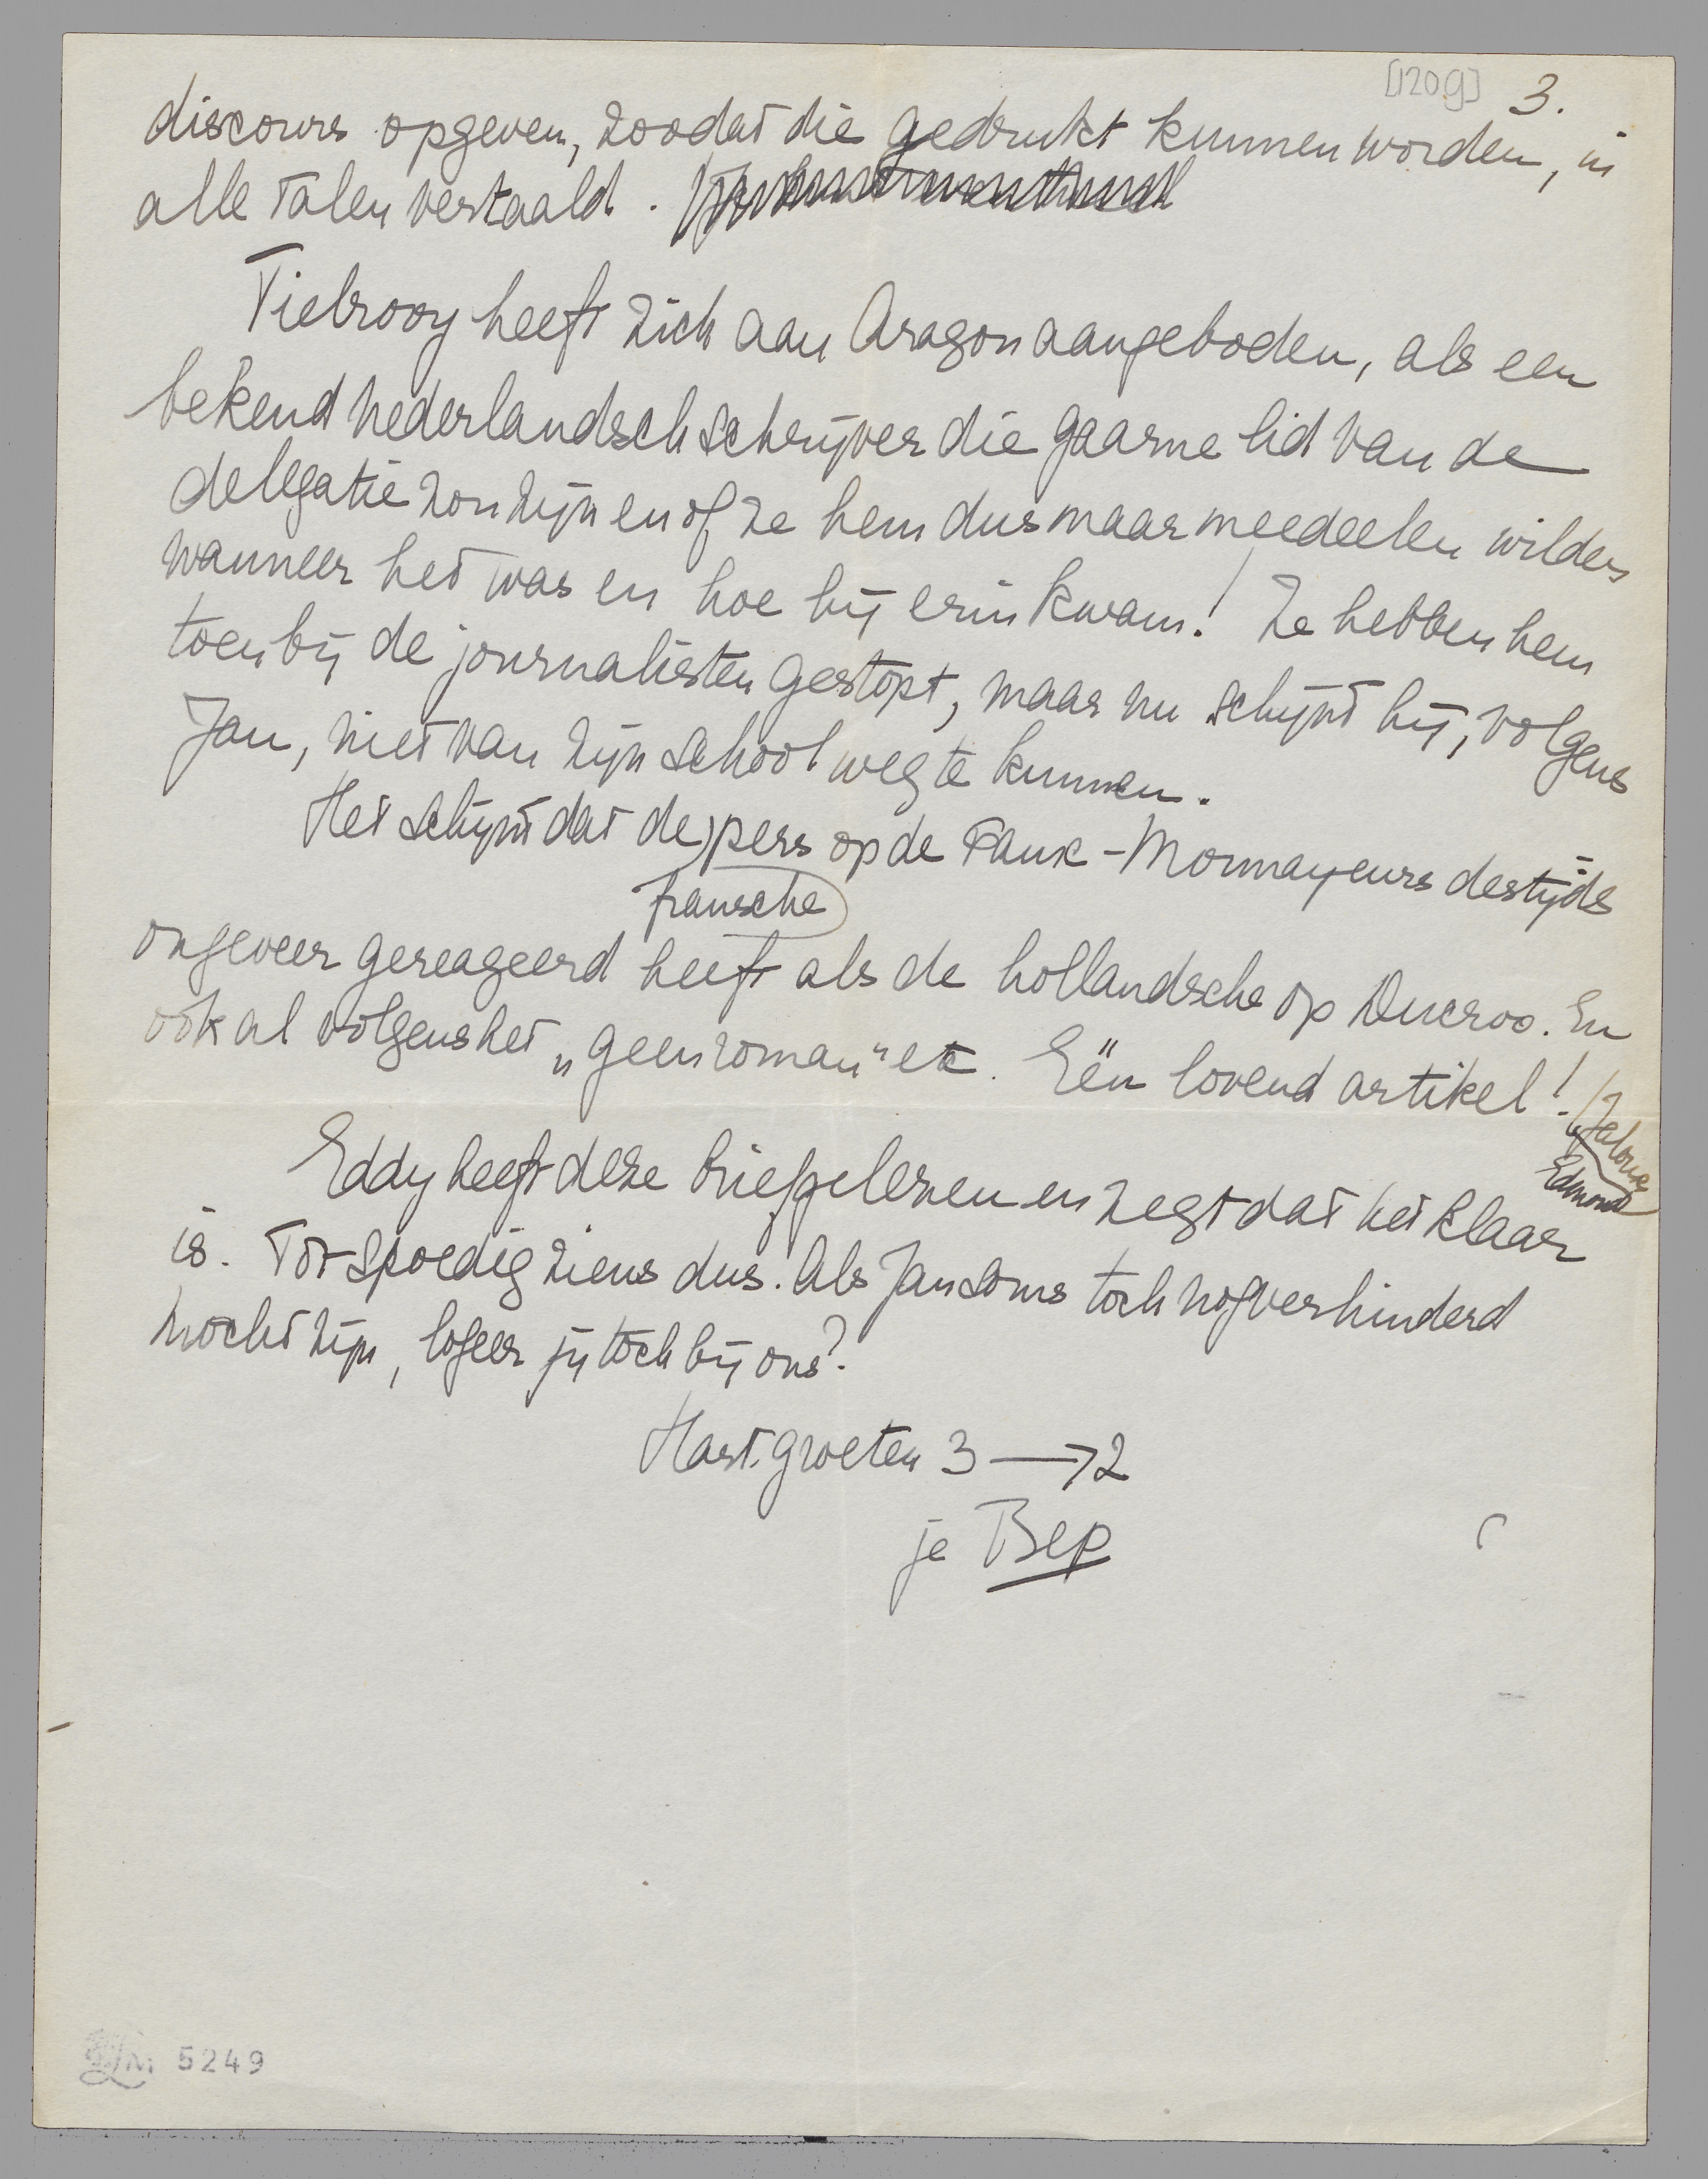 [120g] 3.
discours opgeven, zoodat die gedrukt kunnen worden, in
alle talen vertaald.
Tielrooy heeft zich aan Aragon aangeboden, als een
bekend nederlandsch schrijver die gaarne lid van de
delegatie zou zijn en of ze hem dus maar meedeelen wilden
wanneer het was en hoe hij erin kwam! Ze hebben hem
toen bij de journalisten gestopt, maar nu schijnt hij, volgens
Jan, niet van zijn school weg te kunnen.
Het schijnt dat de pers op de Fauk-Monnayeurs destijds
fransche
ongeveer gereageerd heeft als de hollandsche op Ducroo. En
ook al volgens het „geen roman" etc. Eén lovend artikel!
Jaloux
Edmond
Eddy heeft deze brief gelezen en zegt dat het klaar
is. Tot spoedig ziens dus. Als Jan soms toch nog verhinderd
mocht zijn, logeer jij toch bij ons?
Hart. groeten 3 → 2
je Bep
LM 5249